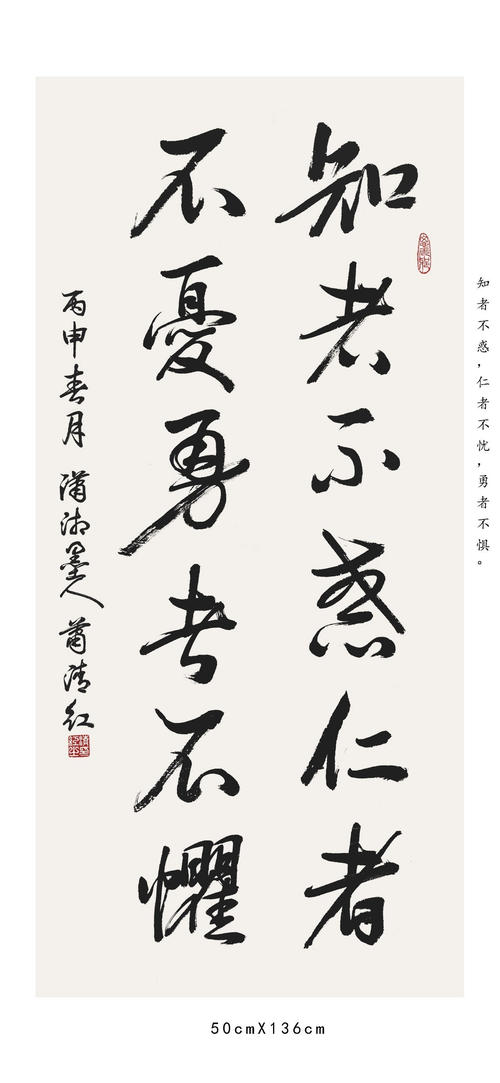 知者不惑仁者
不憂勇者不懼
丙申春月 瀟湘墨人 蕭清紅
知者不惑，仁者不忧，勇者不惧。
50cmX136cm